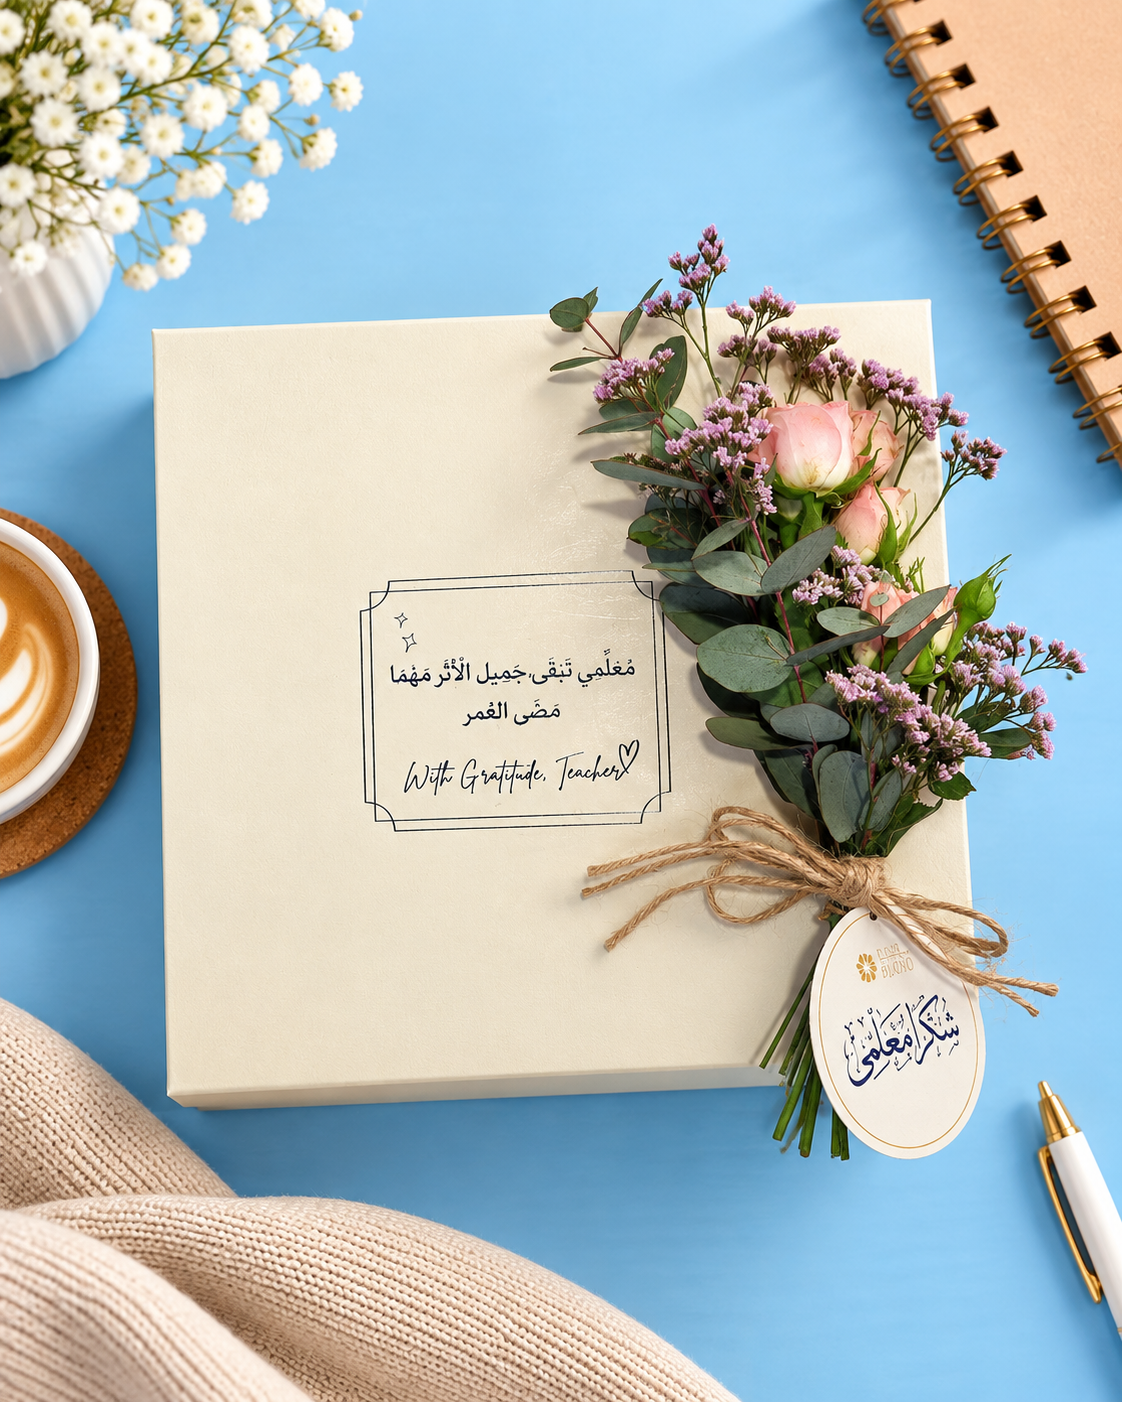 مُعَلِّمِي تَبْقَى جَمِيل الْأَثَر مَهْمَا
مَضَى العُمر
With Gratitude, Teacher
شكرا معلمي